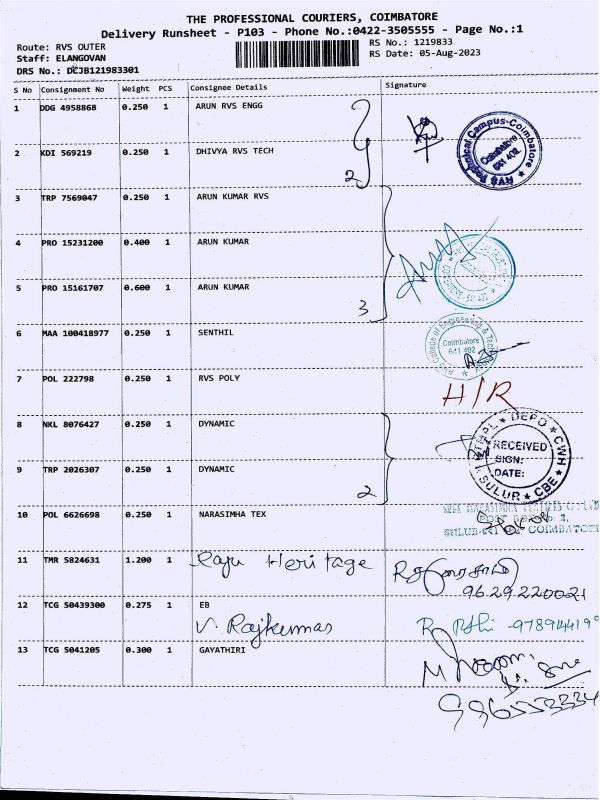 THE PROFESSIONAL COURIERS, COIMBATORE
Delivery Runsheet - P103 - Phone No.:0422-3505555 - Page No.:1
Route: RVS OUTER
Staff: ELANGOVAN
DRS No.: DCJB121983301
RS No.: 1219833
RS Date: 05-Aug-2023
S No Consignment No Weight PCS Consignee Details Signature
1 DDG 4958868 0.250 1 ARUN RVS ENGG
RVS Technical Campus-Coimbatore
Coimbatore
641 402
2 KDI 569219 0.250 1 DHIVYA RVS TECH
2
3 TRP 7569047 0.250 1 ARUN KUMAR RVS
4 PRO 15231200 0.400 1 ARUN KUMAR
5 PRO 15161707 0.600 1 ARUN KUMAR
3
6 MAA 100418977 0.250 1 SENTHIL
RVS College of Engineering &
Coimbatore
641 402
7 POL 222798 0.250 1 RVS POLY
H/R
8 NKL 8076427 0.250 1 DYNAMIC
DEPO CWH
RECEIVED
SIGN:
DATE:
SULUR CBE
9 TRP 2026307 0.250 1 DYNAMIC
2
10 POL 6626698 0.250 1 NARASIMHA TEX
COIMBATORE
11 TMR 5824631 1.200 1 Raju Heritage
9629220021
12 TCG 50439300 0.275 1 EB
V. Rajkumar
13 TCG 5041205 0.300 1 GAYATHIRI